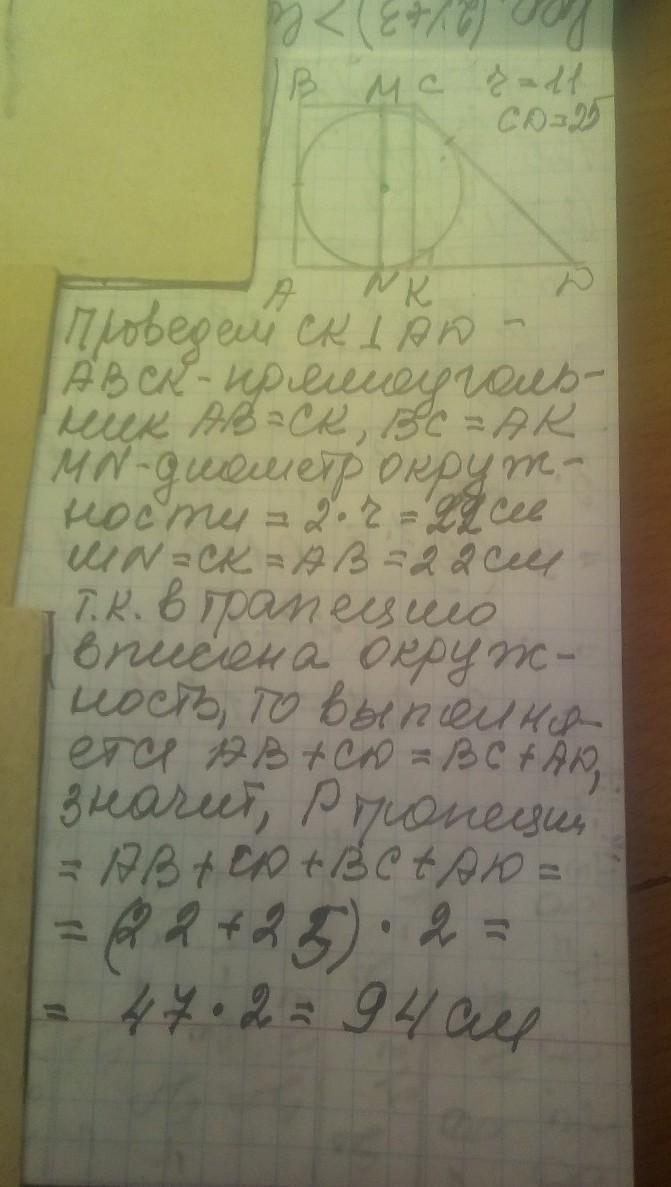 B M C r = 11
CD = 25
A N K D
Проведем CK ⊥ AD -
ABCK - прямоуголь-
ник AB = CK, BC = AK
MN - диаметр окруж-
ности = 2·r = 22 см
MN = CK = AB = 22 см
т.к. в трапецию
вписана окруж-
ность, то выполня-
ется AB + CD = BC + AD,
значит, P трапеции
= AB + CD + BC + AD =
= (22 + 25) · 2 =
= 47 · 2 = 94 см